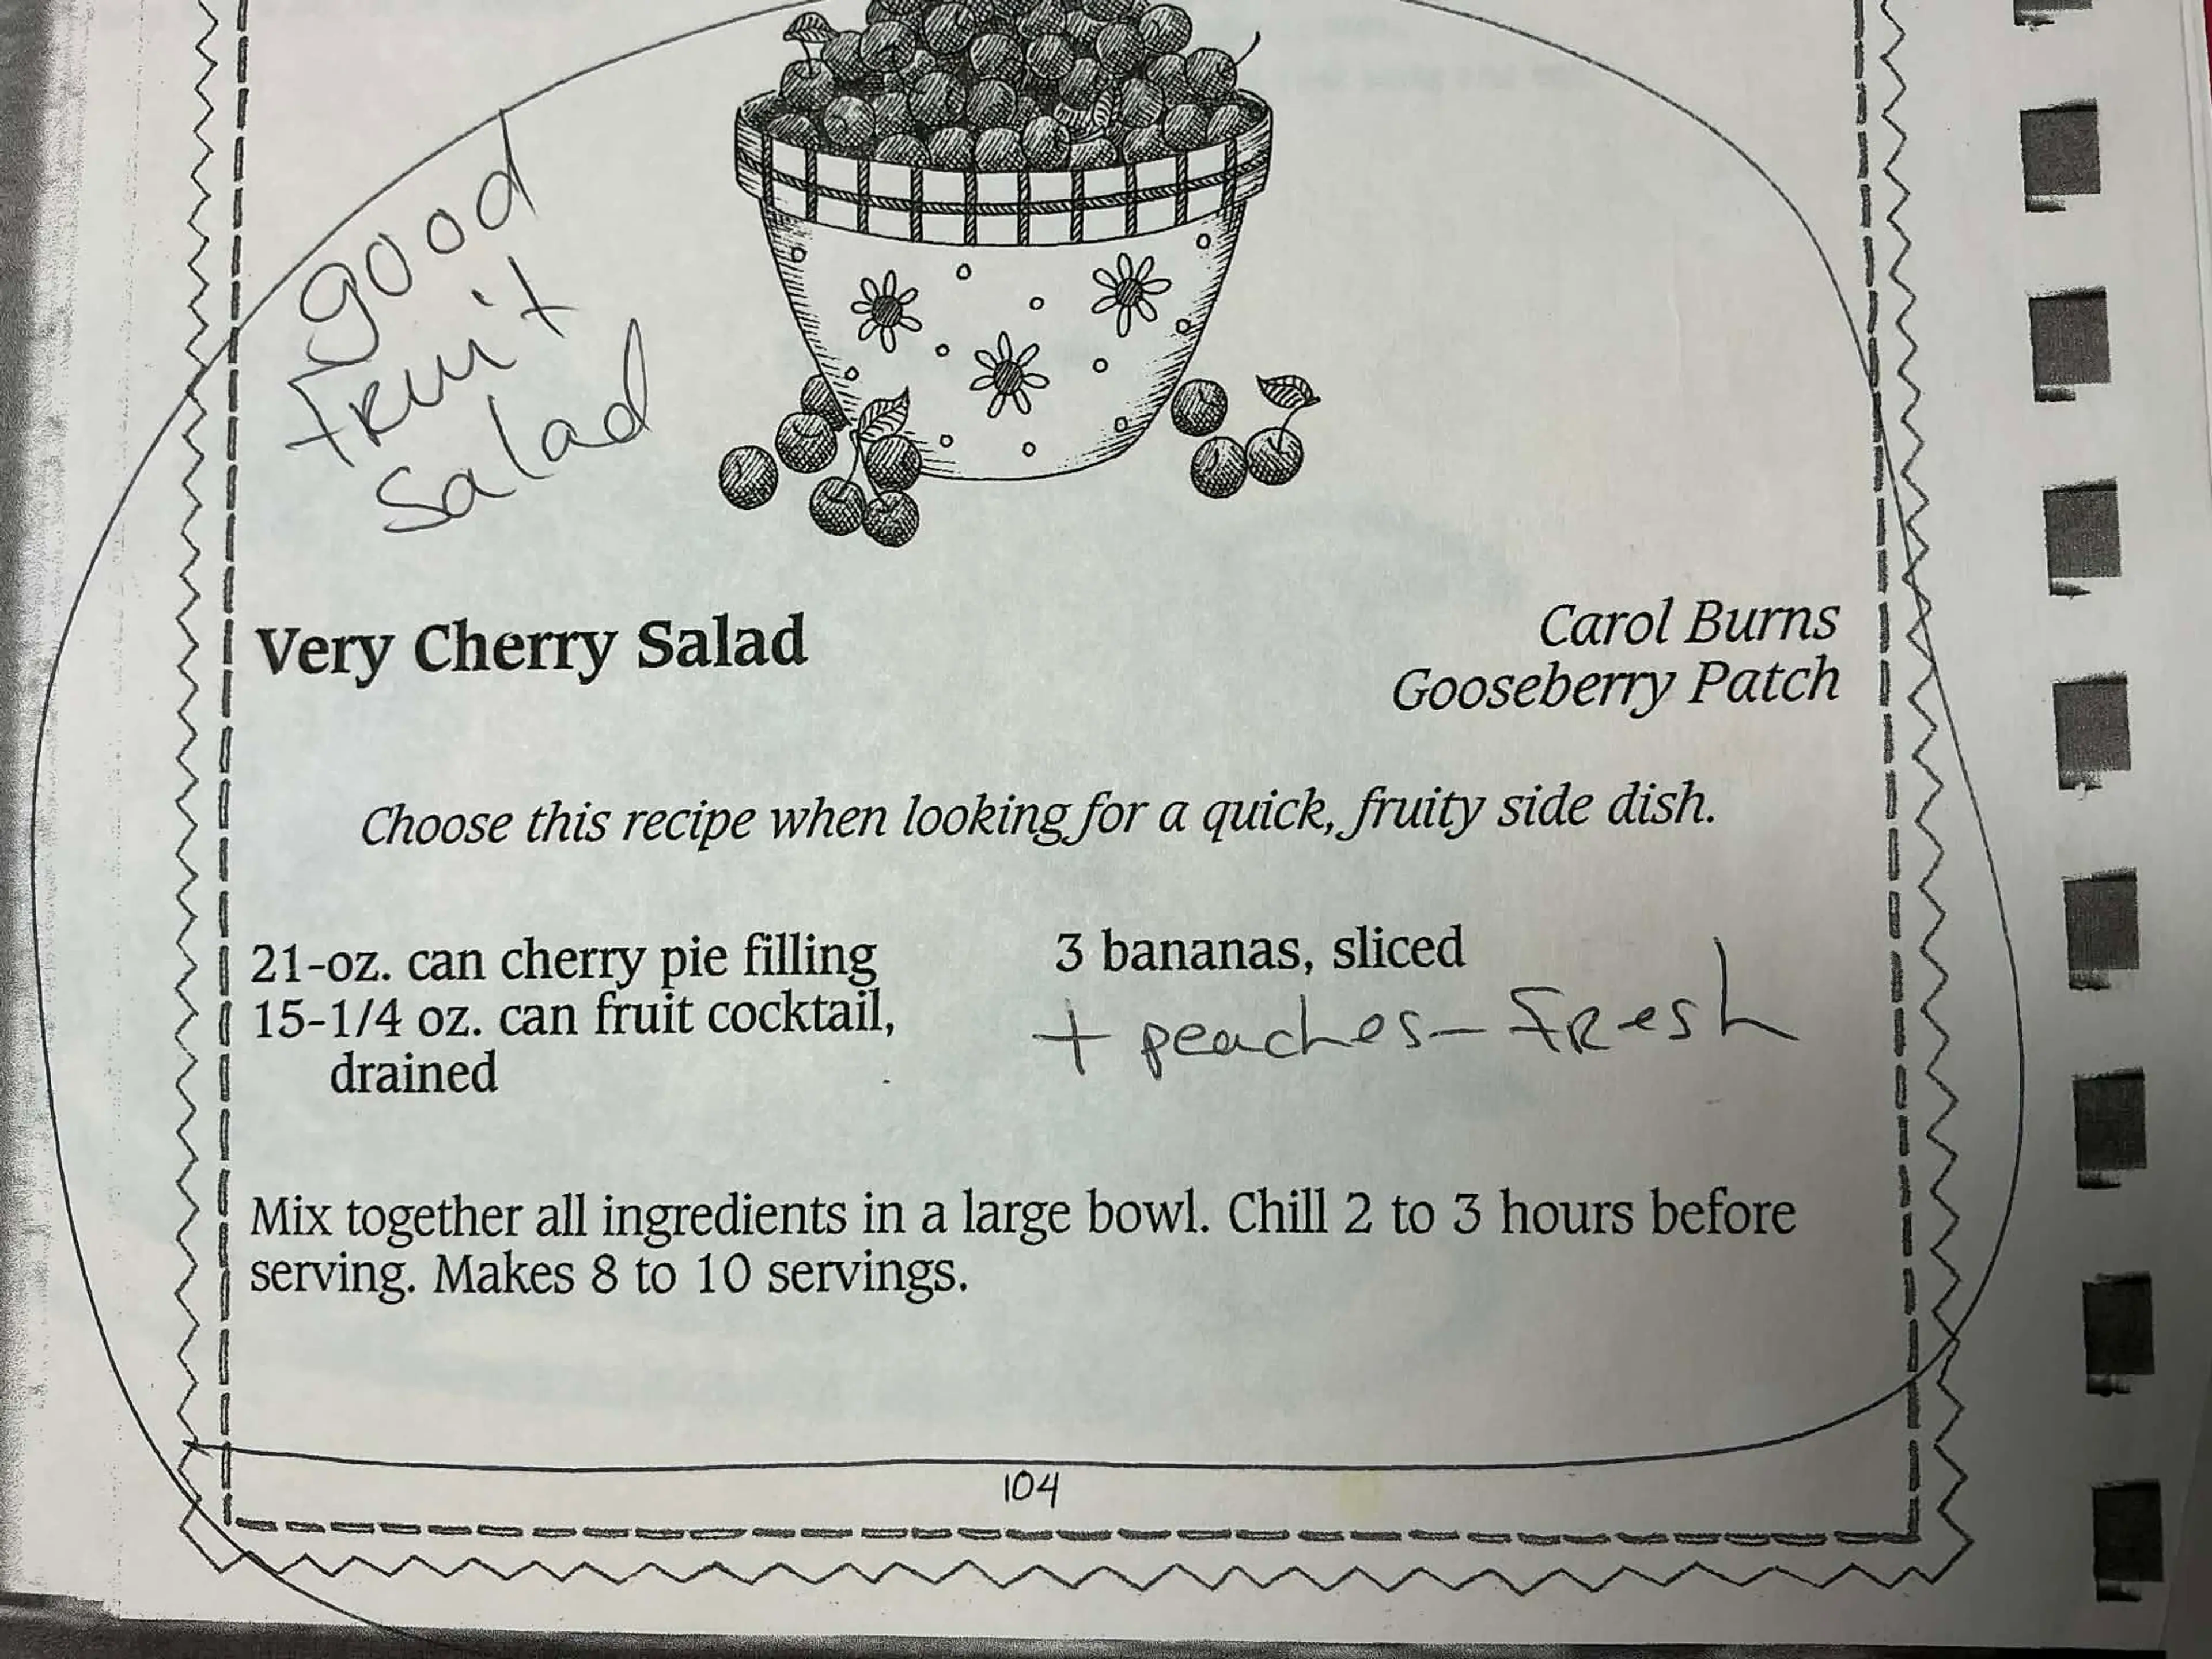 good
fruit
salad
Very Cherry Salad
Carol Burns
Gooseberry Patch
Choose this recipe when looking for a quick, fruity side dish.
21-oz. can cherry pie filling
15-1/4 oz. can fruit cocktail,
drained
3 bananas, sliced
+ peaches - fresh
Mix together all ingredients in a large bowl. Chill 2 to 3 hours before
serving. Makes 8 to 10 servings.
104